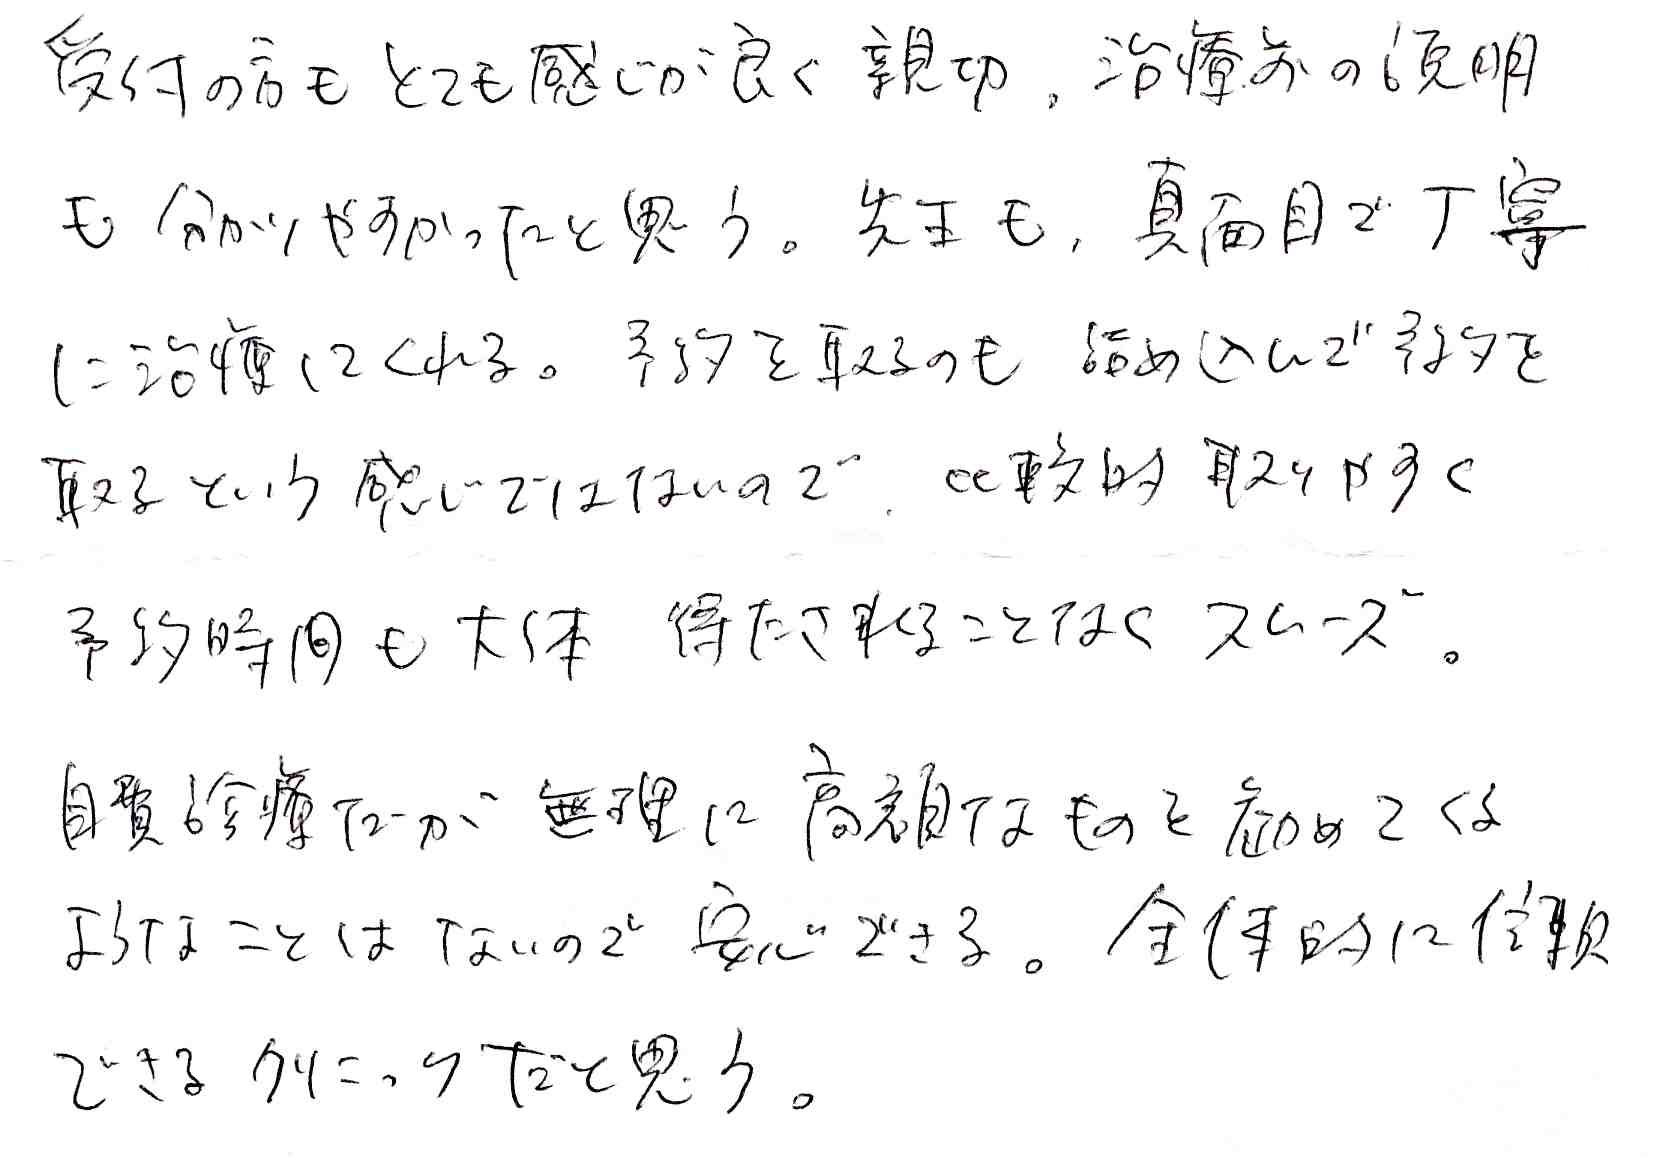 受付の方もとても感じが良く親切、治療前の説明
も分かりやすかったと思う。先生も、真面目で丁寧
に治療してくれる。予約を取るのも詰め込んで予約を
取るという感じではないので、比較的取りやすく
予約時間も大体待たされることなくスムーズ。
自費診療だが無理に高額なものを勧めてくる
ようなことはないので安心できる。全体的に信頼
できるクリニックだと思う。